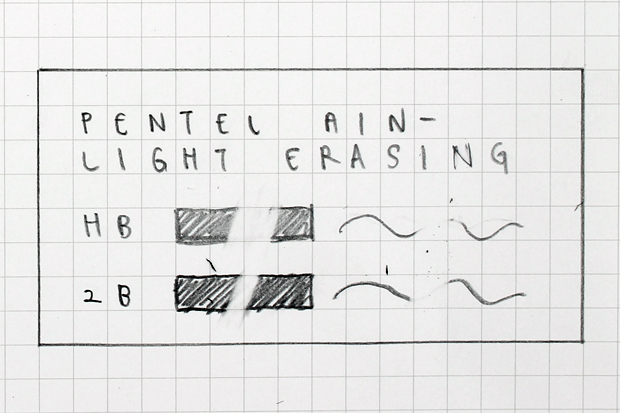 PENTEL AIN-
LIGHT ERASING
HB
2B